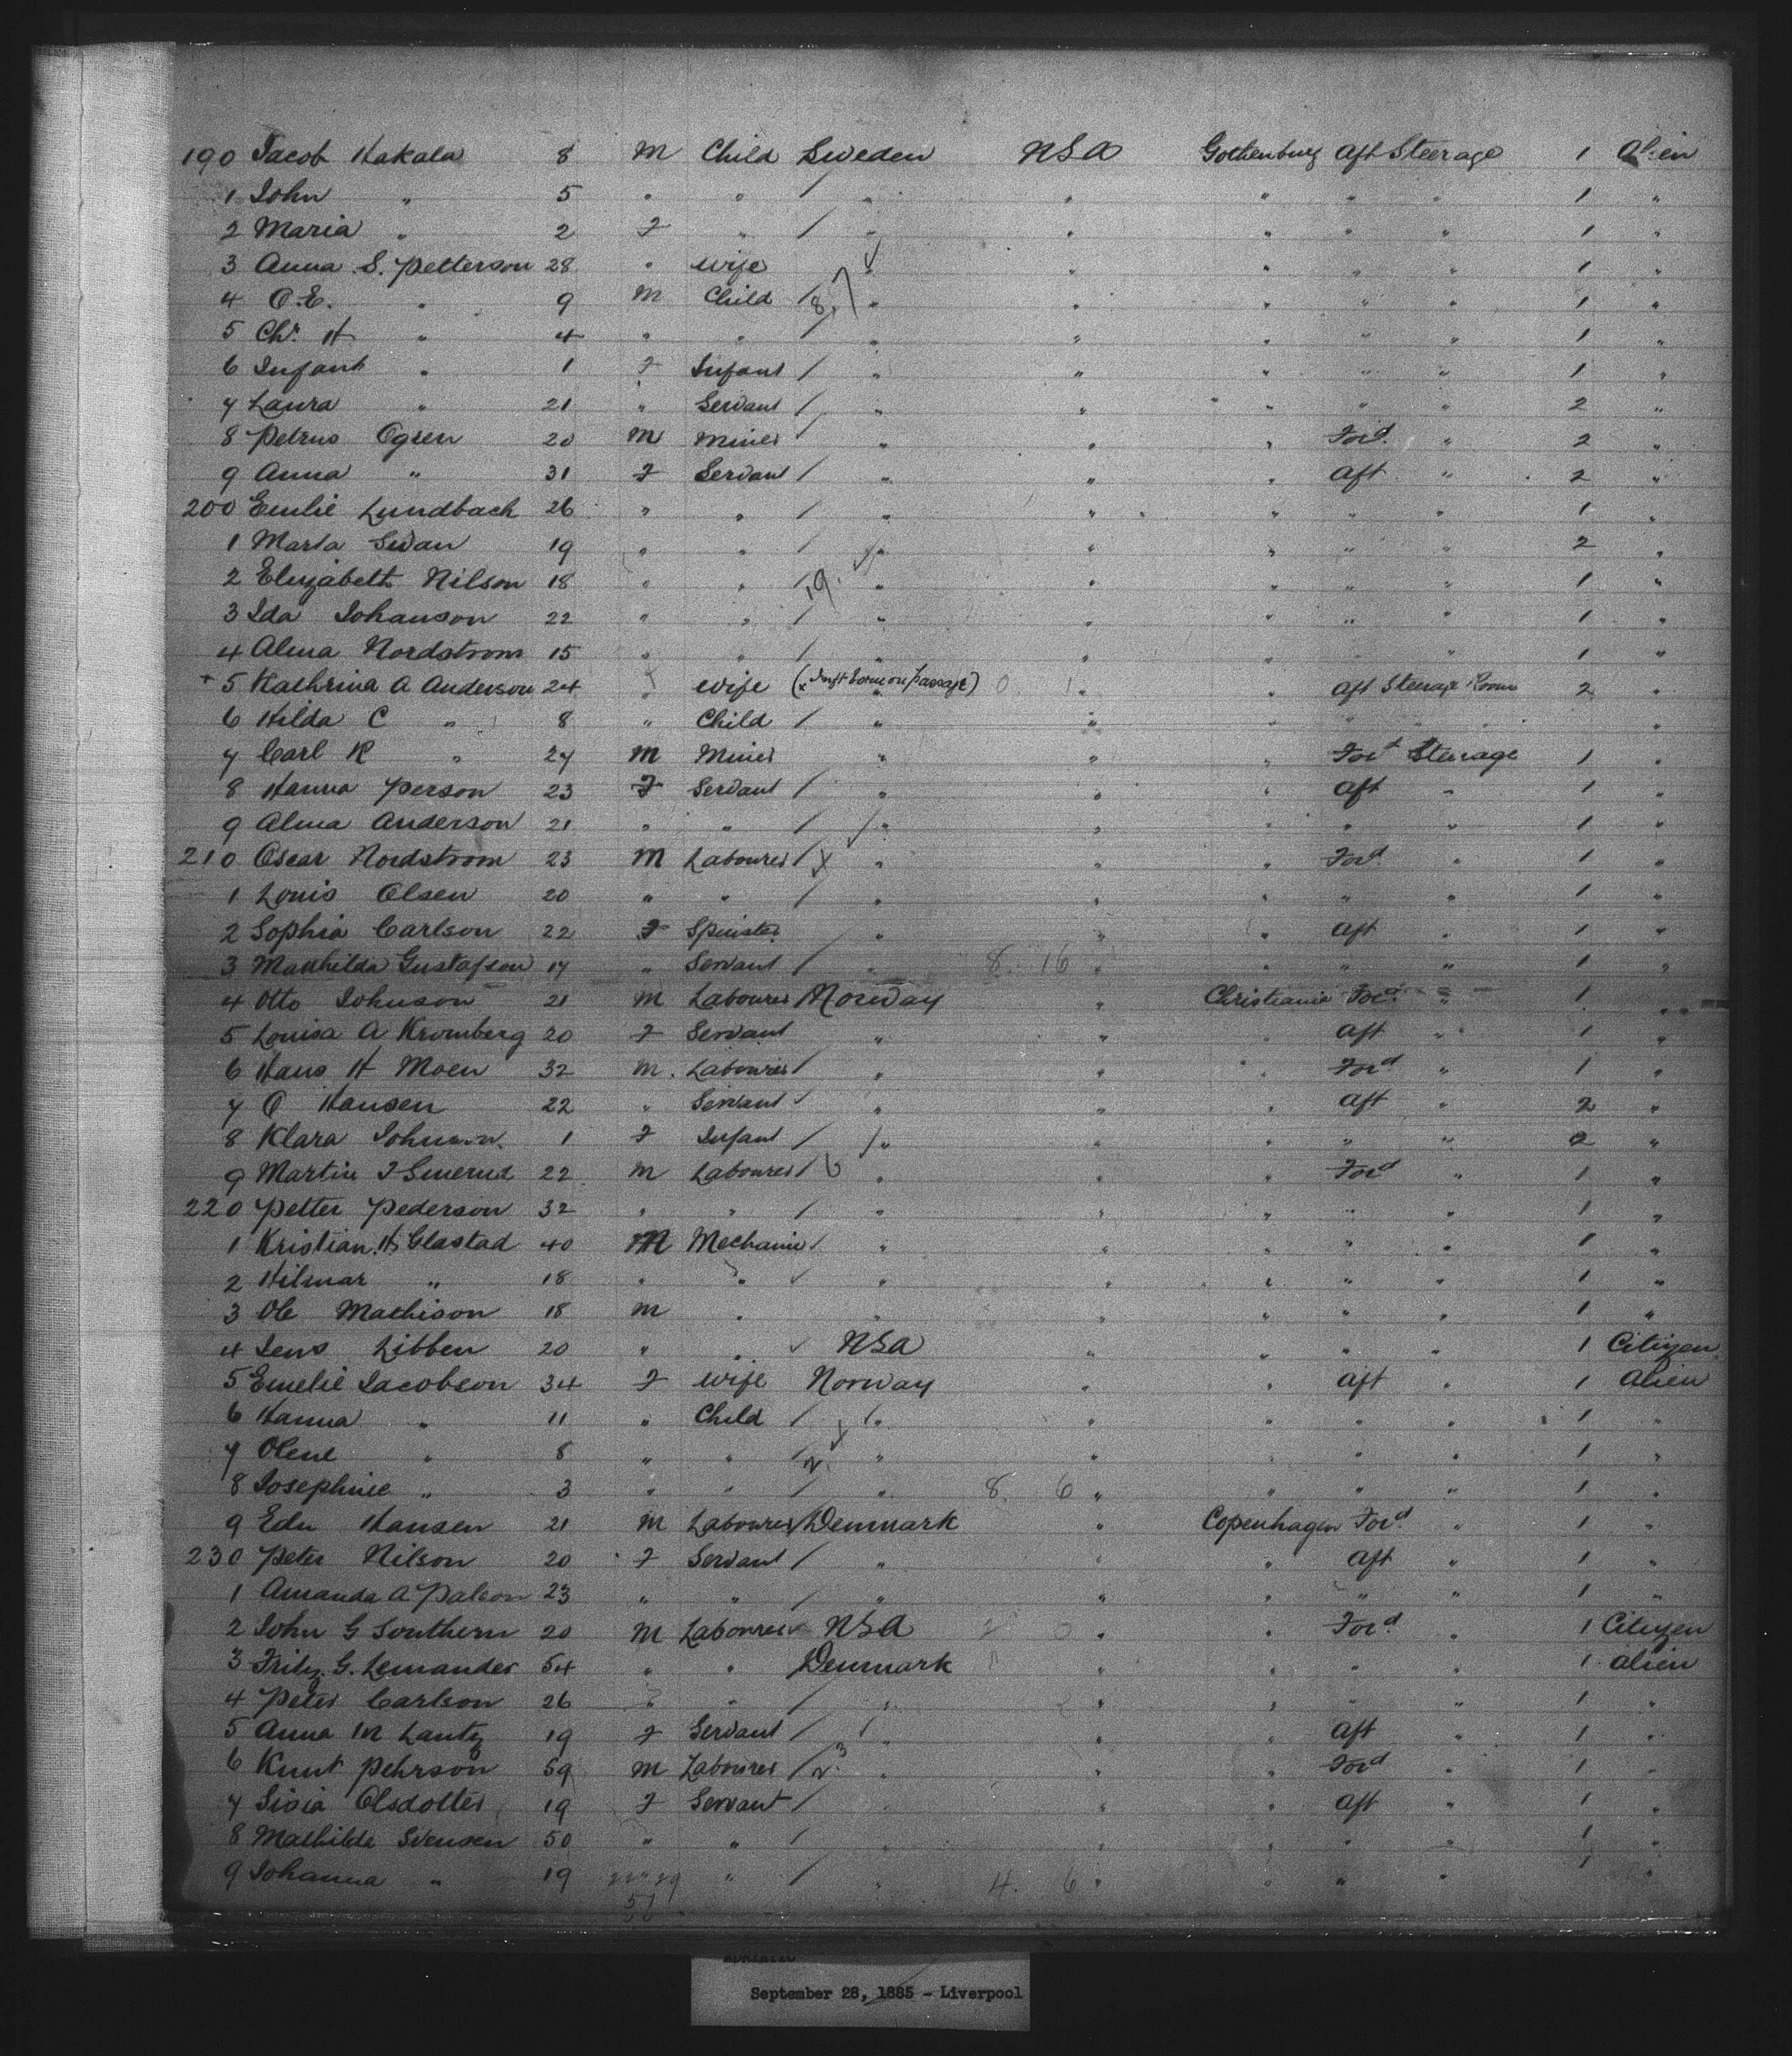 190 Jacob Hakala 8 M Child Sweden USA Gothenburg Aft Steerage 1 Alien
1 John " 5 " " / " " " " " 1 "
2 Maria " 2 F " / " " " " " 1 "
3 Anna S. Petterson 28 " wife " " " " " 1 "
4 O.E. " 9 M Child / 8 " " " " " 1 "
5 Chr. H " 4 " " / " " " " " 1 "
6 Infant " 1 F Infant / " " " " " 1 "
7 Laura " 21 " Servant / " " " " " 2 "
8 Petrus Ogren 20 M Miner / " " " Ford. " 2 "
9 Anna " 31 F Servant / " " " Aft " 2 "
200 Emilie Lundbach 26 " " / " " " " " 1 "
1 Marta Swan 19 " " / " " " " " 2 "
2 Elizabeth Nilson 18 " " / 19. " " " " " 1 "
3 Ida Johanson 22 " " / " " " " " 1 "
4 Alma Nordstrom 15 " " / " " " " " 1 "
+ 5 Kathrina A Anderson 24 " wife (x Inft borne on passage) 0. 1 " " Aft Steerage Room 2 "
6 Hilda C " 8 " Child / " " " " " " "
7 Carl R " 27 M Miner " " " Ford Steerage 1 "
8 Hanna Person 23 F Servant / " " " Aft " 1 "
9 Alma Anderson 21 " " / " " " " " 1 "
210 Oscar Nordstrom 23 M Labourer / " " " Ford. " 1 "
1 Louis Olsen 20 " " / " " " " " 1 "
2 Sophia Carlson 22 F Spinster " " " Aft " 1 "
3 Mathilda Gustafson 17 " Servant / " 8. 16 " " " " 1 "
4 Otto Johnson 21 M Labourer Norway " Christiania Ford. " 1 "
5 Louisa A Kromberg 20 F Servant " " Aft " 1 "
6 Hans H Moen 32 M. Labourer / " " " Ford " 1 "
7 O Hansen 22 " Servant ✓ " " " Aft " 2 "
8 Klara Johnson 1 F Infant / " " " " " 2 "
9 Martin J Smerud 22 M Labourer / 6 " " " Ford " 1 "
220 Petter Pederson 32 " " / " " " " " 1 "
1 Kristian H. Glastad 40 M Mechanic / " " " " " 1 "
2 Hilmar " 18 " " ✓ " " " " " 1 "
3 Ole Mathison 18 M " " " " " " 1 "
4 Jens Libben 20 " " ✓ USA " " " " 1 Citizen
5 Emelie Jacobson 34 F wife Norway " " Aft " 1 Alien
6 Hanna " 11 " Child / " " " " " 1 "
7 Olene " 8 " " / 2. " " " " " 1 "
8 Josephine " 3 " " / " 8. 6 " " " " 1 "
9 Edw Hansen 21 M Labourer Denmark " Copenhagen Ford. " 1 "
230 Peter Nilson 20 F Servant / " " " Aft " 1 "
1 Amanda A Palson 23 " " / " " " " " 1 "
2 John G Southern 20 M Labourer ✓ USA 2 0 " " Ford. " 1 Citizen
3 Fritz. G. Lemander 54 " " Denmark " " " " 1 alien
4 Peter Carlson 26 " " / " " " " " 1 "
5 Anna M Lantz 19 F Servant / " " " Aft " 1 "
6 Knut Pehrson 59 M Labourer / 2. 3 " " " Ford " 1 "
7 Sisia Olsdotter 19 F Servant / " " " Aft " 1 "
8 Mathilda Svensen 50 " " / " " " " " 1 "
9 Johanna " 19 " " / " 4. 6 " " " " 1 "
September 28, 1885 - Liverpool